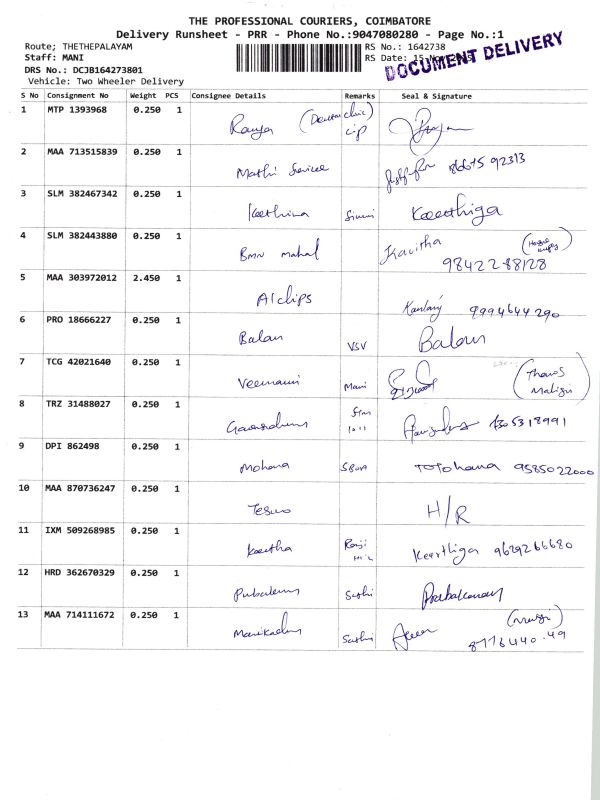 THE PROFESSIONAL COURIERS, COIMBATORE
Delivery Runsheet - PRR - Phone No.:9047080280 - Page No.:1
Route; THETHEPALAYAM
RS No.: 1642738
Staff: MANI
RS Date: 15-Nov
DOCUMENT DELIVERY
DRS No.: DCJB164273801
Vehicle: Two Wheeler Delivery
S No Consignment No Weight PCS Consignee Details Remarks Seal & Signature
1 MTP 1393968 0.250 1
Ramya
2 MAA 713515839 0.250 1
Mathi Service 86675 92313
3 SLM 382467342 0.250 1
Keerthina Keerthiga
4 SLM 382443880 0.250 1
BMN Mahal Kavitha
98422 88128
5 MAA 303972012 2.450 1
A1clips 9994644290
6 PRO 18666227 0.250 1
Balan VSV Balan
7 TCG 42021640 0.250 1
Veemani Mani
8 TRZ 31488027 0.250 1
9 DPI 862498 0.250 1
Mohana SBOA Mohana 9585022000
10 MAA 870736247 0.250 1
H/R
11 IXM 509268985 0.250 1
Keertha Keerthiga 9629266680
12 HRD 362670329 0.250 1
Sathi Prabakaran
13 MAA 714111672 0.250 1
Manikadan Sathi